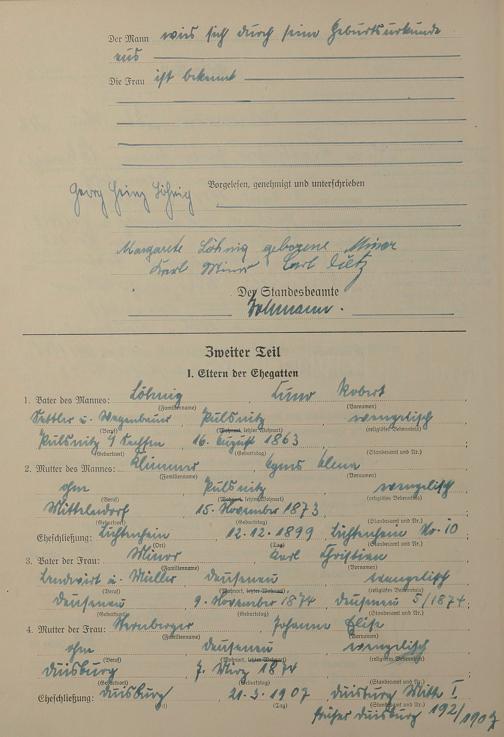 Der Mann wies sich durch seine Geburtsurkunde
aus
Die Frau ist bekannt
Vorgelesen, genehmigt und unterschrieben
Georg Heinz Löhnig
Margarete Löhnig geborene Minor
Karl Minor Carl Dietz
Der Standesbeamte
Zweiter Teil
I. Eltern der Ehegatten
1. Vater des Mannes: Löhnig Robert
(Familienname) (Vornamen)
Sattler u. Wagenbauer Pulsnitz evangelisch
(Beruf) (Wohnort, letzter Wohnort) (religiöses Bekenntnis)
Pulsnitz 16. August 1863
(Geburtsort) (Geburtstag) (Standesamt und Nr.)
2. Mutter des Mannes: Klimmer Agnes
(Familienname) (Vornamen)
ohne Pulsnitz evangelisch
(Beruf) (Wohnort, letzter Wohnort) (religiöses Bekenntnis)
Mittelndorf 15. November 1873
(Geburtsort) (Geburtstag) (Standesamt und Nr.)
Eheschließung: Lichtenhein 12.12.1899 Lichtenhein No. 10
(Ort) (Tag) (Standesamt und Nr.)
3. Vater der Frau: Minor Karl Christian
(Familienname) (Vornamen)
Landwirt u. Müller Dausenau evangelisch
(Beruf) (Wohnort, letzter Wohnort) (religiöses Bekenntnis)
Dausenau 9. November 1874 Dausenau 5/1874
(Geburtsort) (Geburtstag) (Standesamt und Nr.)
4. Mutter der Frau: Sternberger Johanna Elise
(Familienname) (Vornamen)
ohne Dausenau evangelisch
(Beruf) (Wohnort, letzter Wohnort) (religiöses Bekenntnis)
Duisburg 7. März 1874
(Geburtsort) (Geburtstag) (Standesamt und Nr.)
Eheschließung: Duisburg 21.3.1907 Duisburg Mitte I,
(Ort) (Tag) (Standesamt und Nr.)
früher Duisburg 192/1907